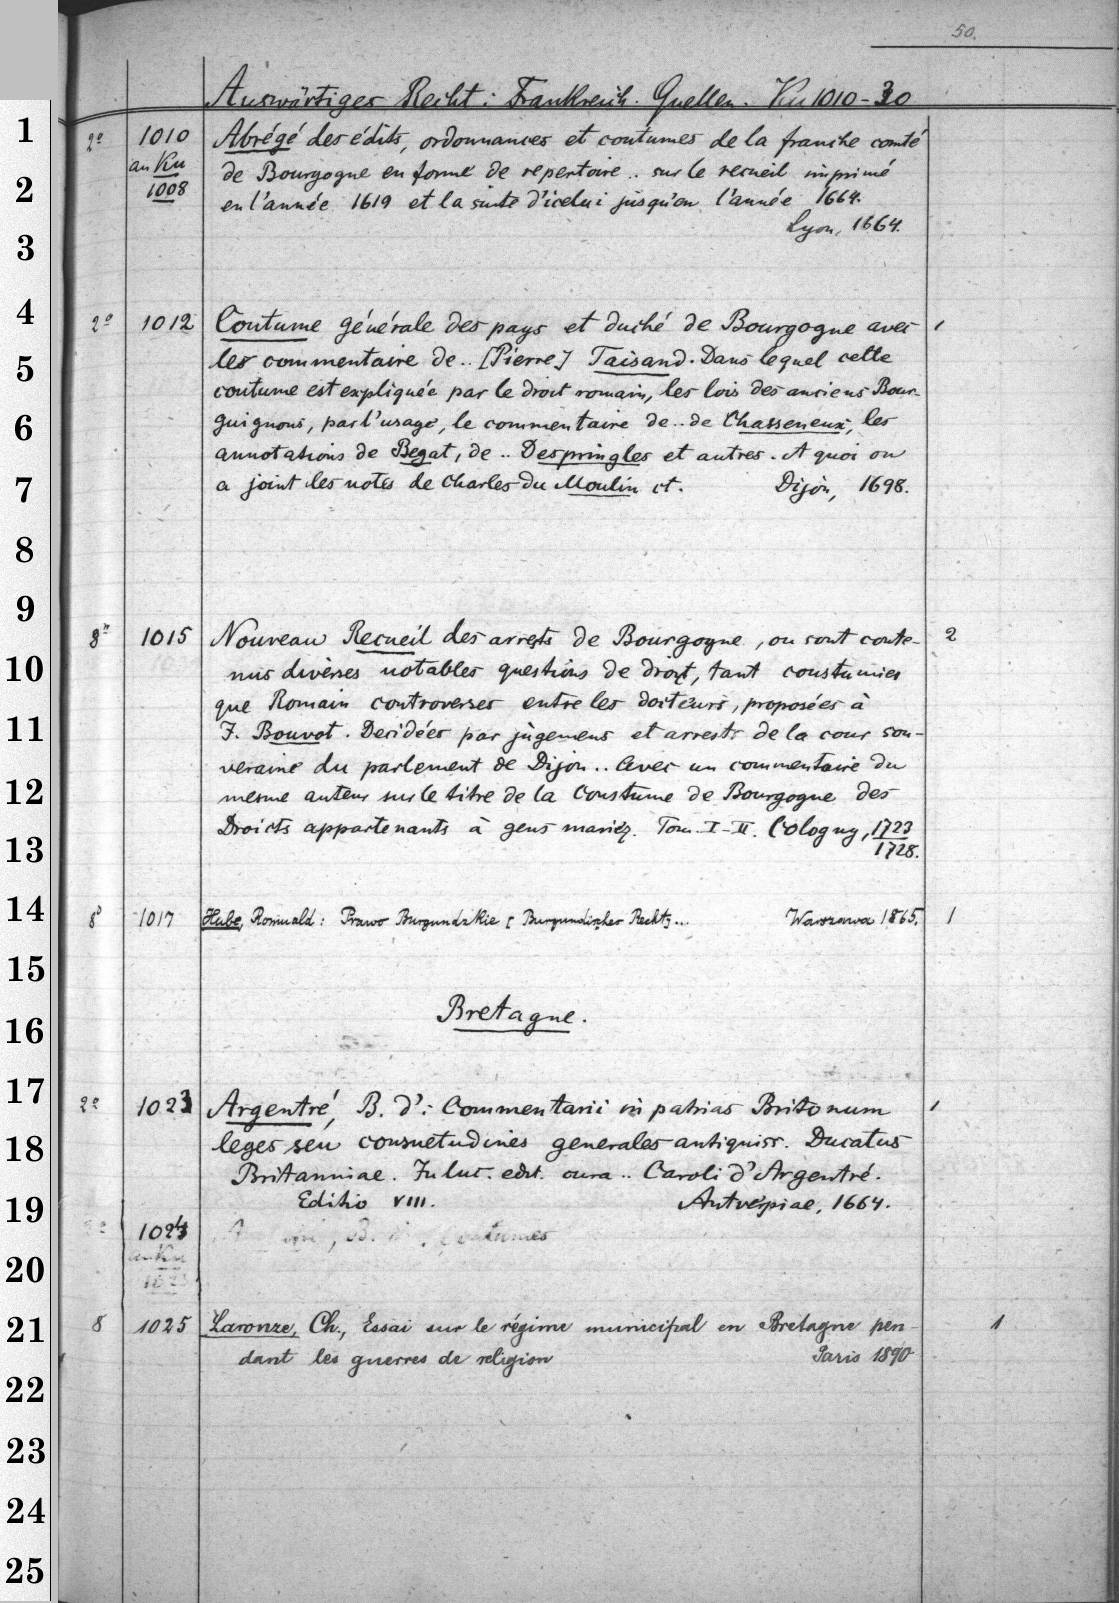 50.
Auswärtiges Recht: Frankreich. Quellen. Ku 1010-30
1
2° 1010 Abrégé des édits, ordonnances et coutumes de la franche comté
an Ku de Bourgogne en forme de repertoire .. sur le recueil imprimé
2
1008 en l'année 1619 et la suite d'icelui jusqu'en l'année 1664.
Lyon, 1664.
3
4
2° 1012 Coutume générale des pays et duché de Bourgogne avec 1
5
les commentaire de .. [Pierre] Taisand. Dans lequel cette
coutume est expliquée par le droit romain, les lois des anciens Bour-
6
guignons, par l'usage, le commentaire de .. de Chasseneux, les
annotations de Begat, de .. Despringles et autres. A quoi on
7
a joint les notes de Charles du Moulin ct. Dijon, 1698.
8
9
8° 1015 Nouveau Recueil des arrests de Bourgogne, ou sont conte- 2
10
nus diverses notables questions de droit, tant coustumier
que Romain controverses entre les docteurs, proposées à
11
J. Bouvot. Decidées par jugemens et arrests de la cour sou-
veraine du parlement de Dijon .. Avec un commentaire du
12
mesme auteur sur le titre de la Coustume de Bourgogne des
Droicts appartenants à gens mariez. Tom. I-II. Cologny, 1723
13
1728.
14
8° 1017 Hube, Romuald: Prawo Burgundzkie [Burgundischer Recht] ... Warszawa 1865. 1
15
16
Bretagne.
17
2° 1023 Argentré, B. d': Commentarii in patrias Britonum 1
18
leges seu consuetudines generales antiquiss. Ducatus
Britanniae. In luc. edit. cura .. Caroli d'Argentré.
19
Editio VIII. Antverpiae, 1664.
1024 B. coutumes
20
an Ku
1023
21
8 1025 Laronze, Ch., Essai sur le régime municipal en Bretagne pen- 1
dant les guerres de religion Paris 1890
22
23
24
25